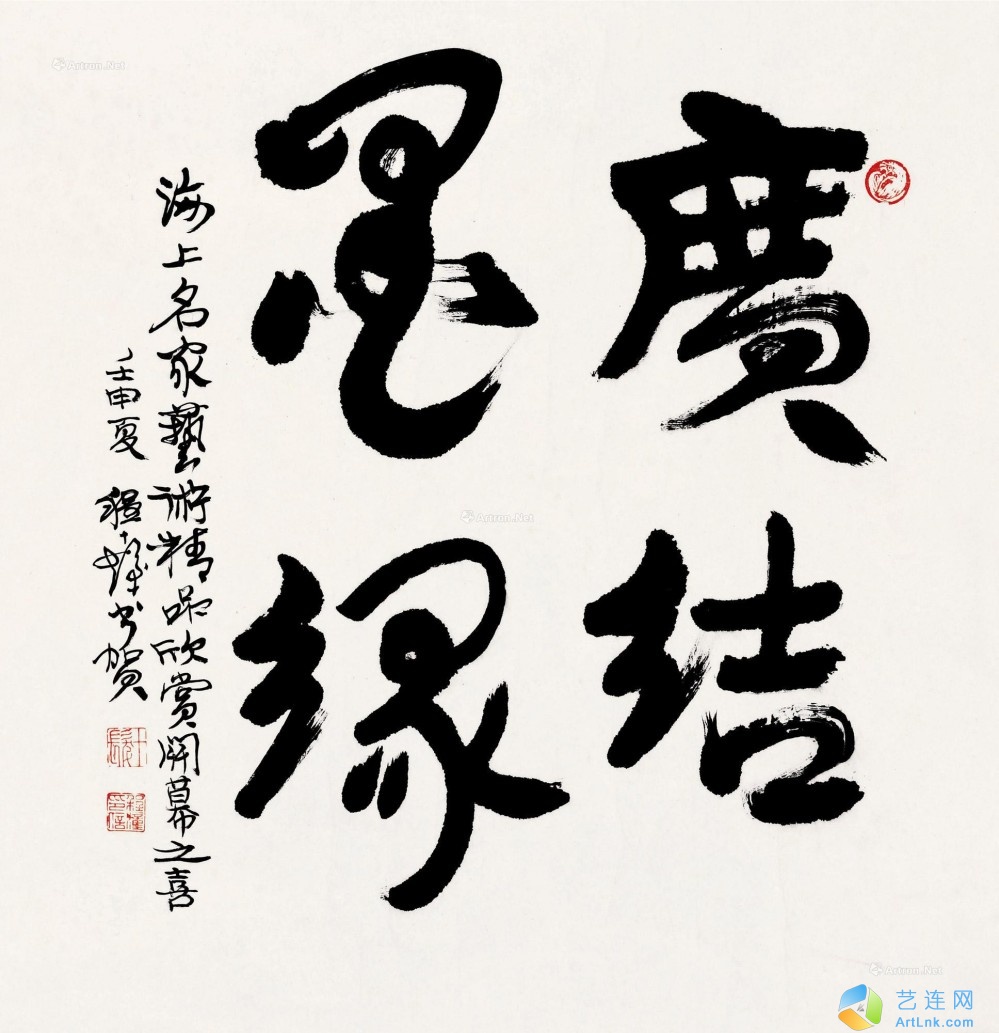 廣結
墨緣
海上名家藝術精品欣賞開幕之喜
壬申夏 程十髮书賀
Artron.Net
Artron.Net
Artron.Net
艺连网
ArtLnk.com